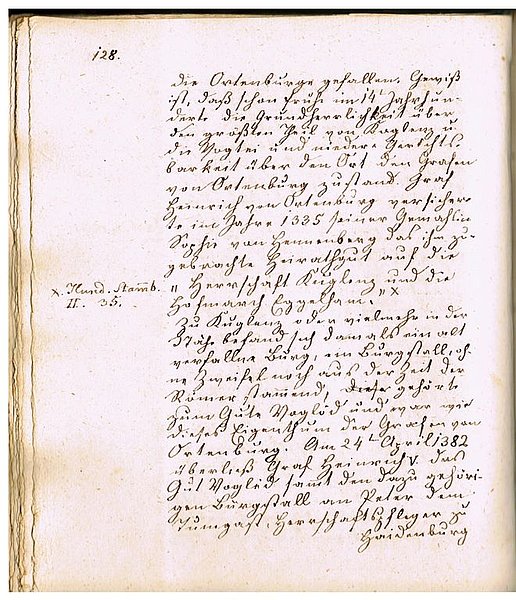 128.
die Ortenburge gefallen. Gewiß
ist, daß schon frühe im 14t Jahrhun-
derte die Grundherrlichkeit über
den größten Theil von Kuglenz u
die Vogtei und niedere Gerichts-
barkeit über den Ort den Grafen
von Ortenburg zustand. Graf
Heinrich von Ortenburg versicher-
te im Jahre 1335 seiner Gemahlin
Sophie von Hennenberg das ihm zu-
gebrachte Heirathgut auf die
x. Hund. Stamb.
II. 35.
„Herrschaft Kuglenz und die
Hofmarch Eggelham." x
Zu Kuglenz oder vielmehr in der
Nähe befand sich damals ein alt
verfallne Burg, ein Burgstall, oh-
ne Zweifel noch aus der Zeit der
Römer stammend, dieser gehörte
zum Gute Voglöd und war wie
dieses Eigenthum der Grafen von
Ortenburg. Am 24t April 1382
überließ Graf Heinrich V. das
Gut Voglöd samt den dazu gehöri-
gen Burgstall an Peter dem
Tumgast, Herrschaftspfleger zu
Haidenburg